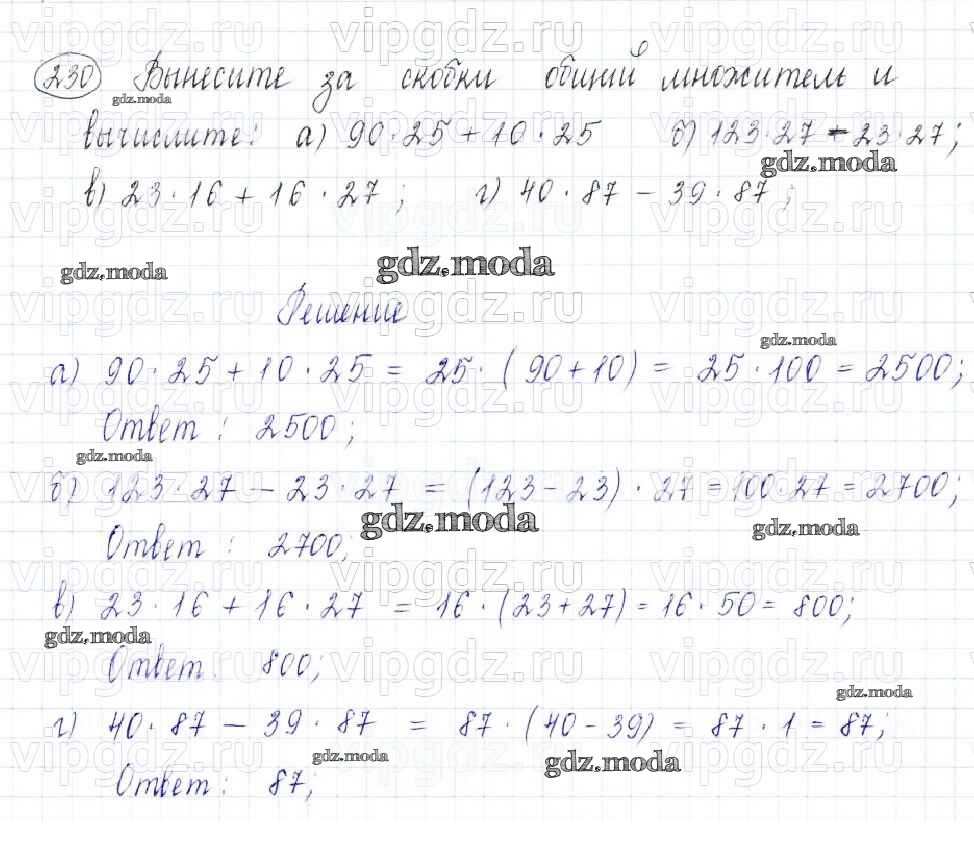 230 Вынесите за скобки общий множитель и
gdz.moda
вычислите: а) 90·25+10·25 б) 123·27-23·27;
gdz.moda
в) 23·16+16·27; г) 40·87-39·87;
gdz.moda gdz.moda
Решение
gdz.moda
а) 90·25+10·25 = 25·(90+10) = 25·100 = 2500;
Ответ: 2500;
gdz.moda
б) 123·27-23·27 = (123-23)·27=100·27=2700;
gdz.moda gdz.moda
Ответ: 2700;
в) 23·16+16·27 = 16·(23+27)=16·50=800;
gdz.moda
Ответ: 800;
gdz.moda
г) 40·87-39·87 = 87·(40-39) = 87·1=87;
gdz.moda gdz.moda
Ответ: 87;
vipgdz.ru vipgdz.ru vipgdz.ru